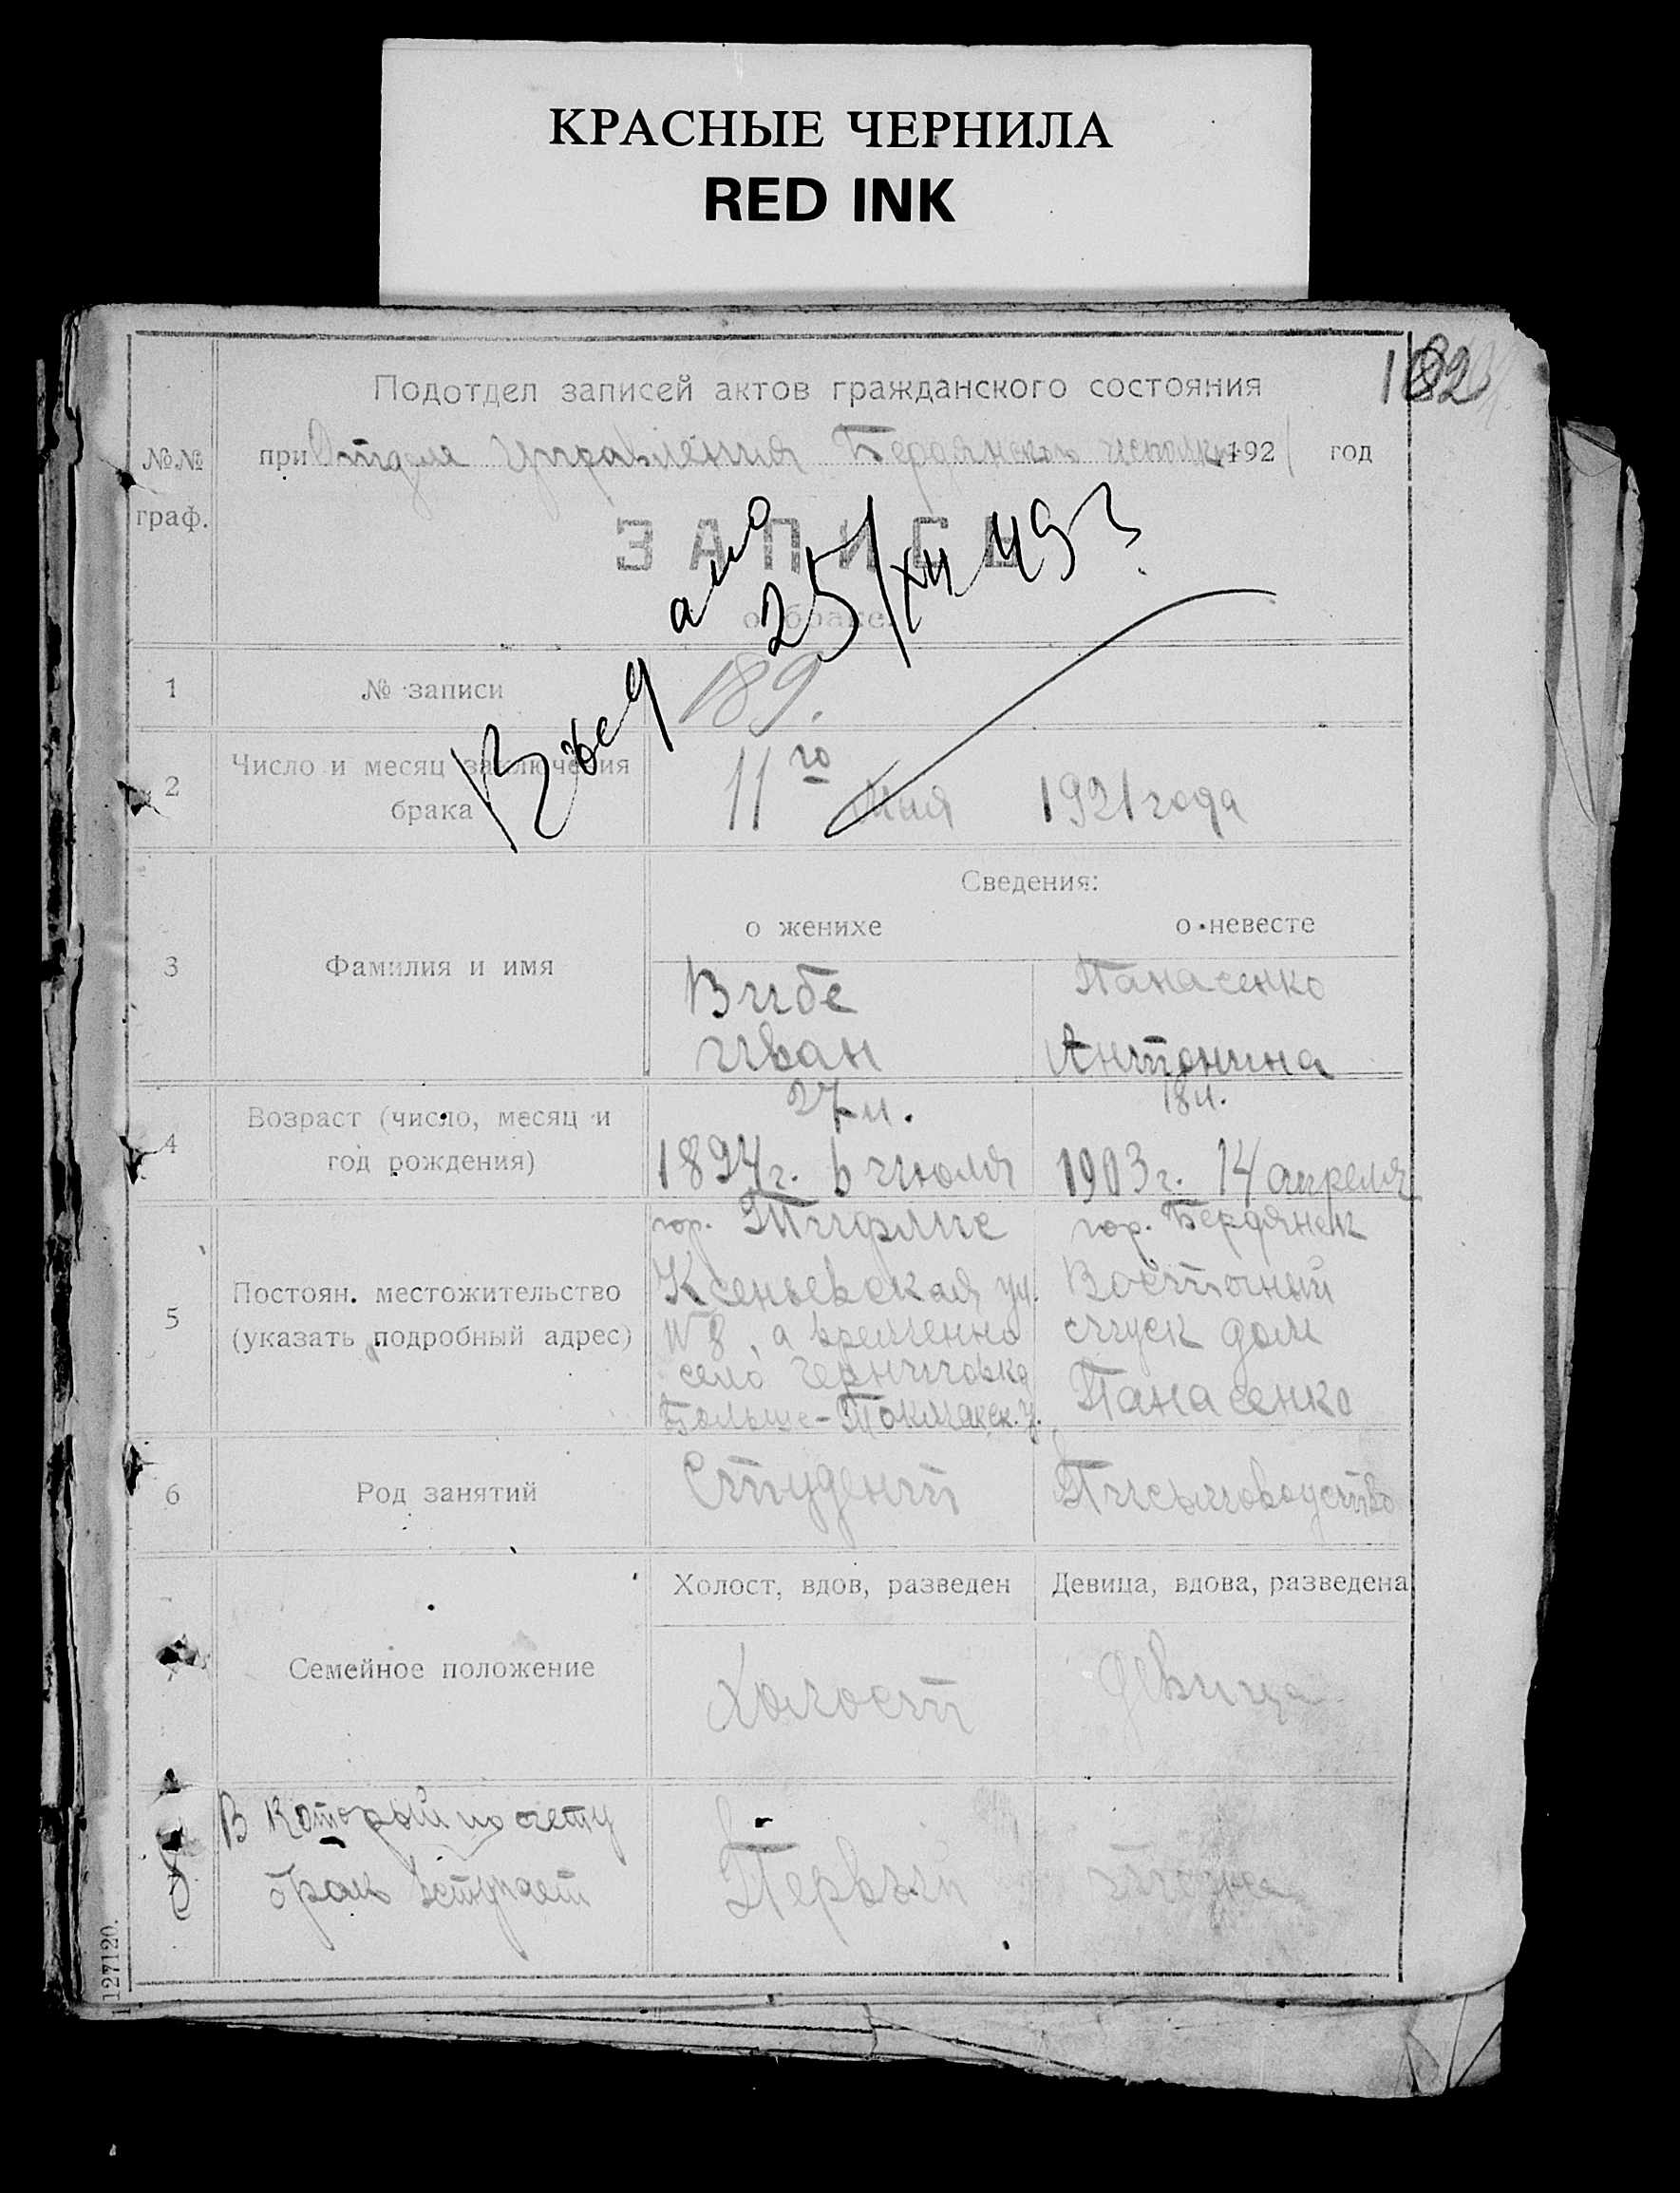 КРАСНЫЕ ЧЕРНИЛА
RED INK
182
Подотдел записей актов гражданского состояния
№№ граф.
при Отделе Управления Бердянского исполк 1921 год
ЗАПИСЬ
о браке.
25/XII 493
1 № записи 189.
2 Число и месяц заключения брака 11го Мая 1921 года
Сведения:
о женихе о невесте
3 Фамилия и имя
Вибе Панасенко
Иван Антонина
27 л. 18 л.
4 Возраст (число, месяц и год рождения)
1894 г. 6 июля 1903 г. 14 апреля
гор. Тифлис гор. Бердянск
5 Постоян. местожительство (указать подробный адрес)
Ксеньевская ул. Восточный
№ 8, а временно спуск дом
село Черниговка
Больше-Токмакск. у. Панасенко
6 Род занятий Студент Письмоводство
Холост, вдов, разведен Девица, вдова, разведена
Семейное положение
Холост девица
В который по счету
брак вступает Первый
127120.